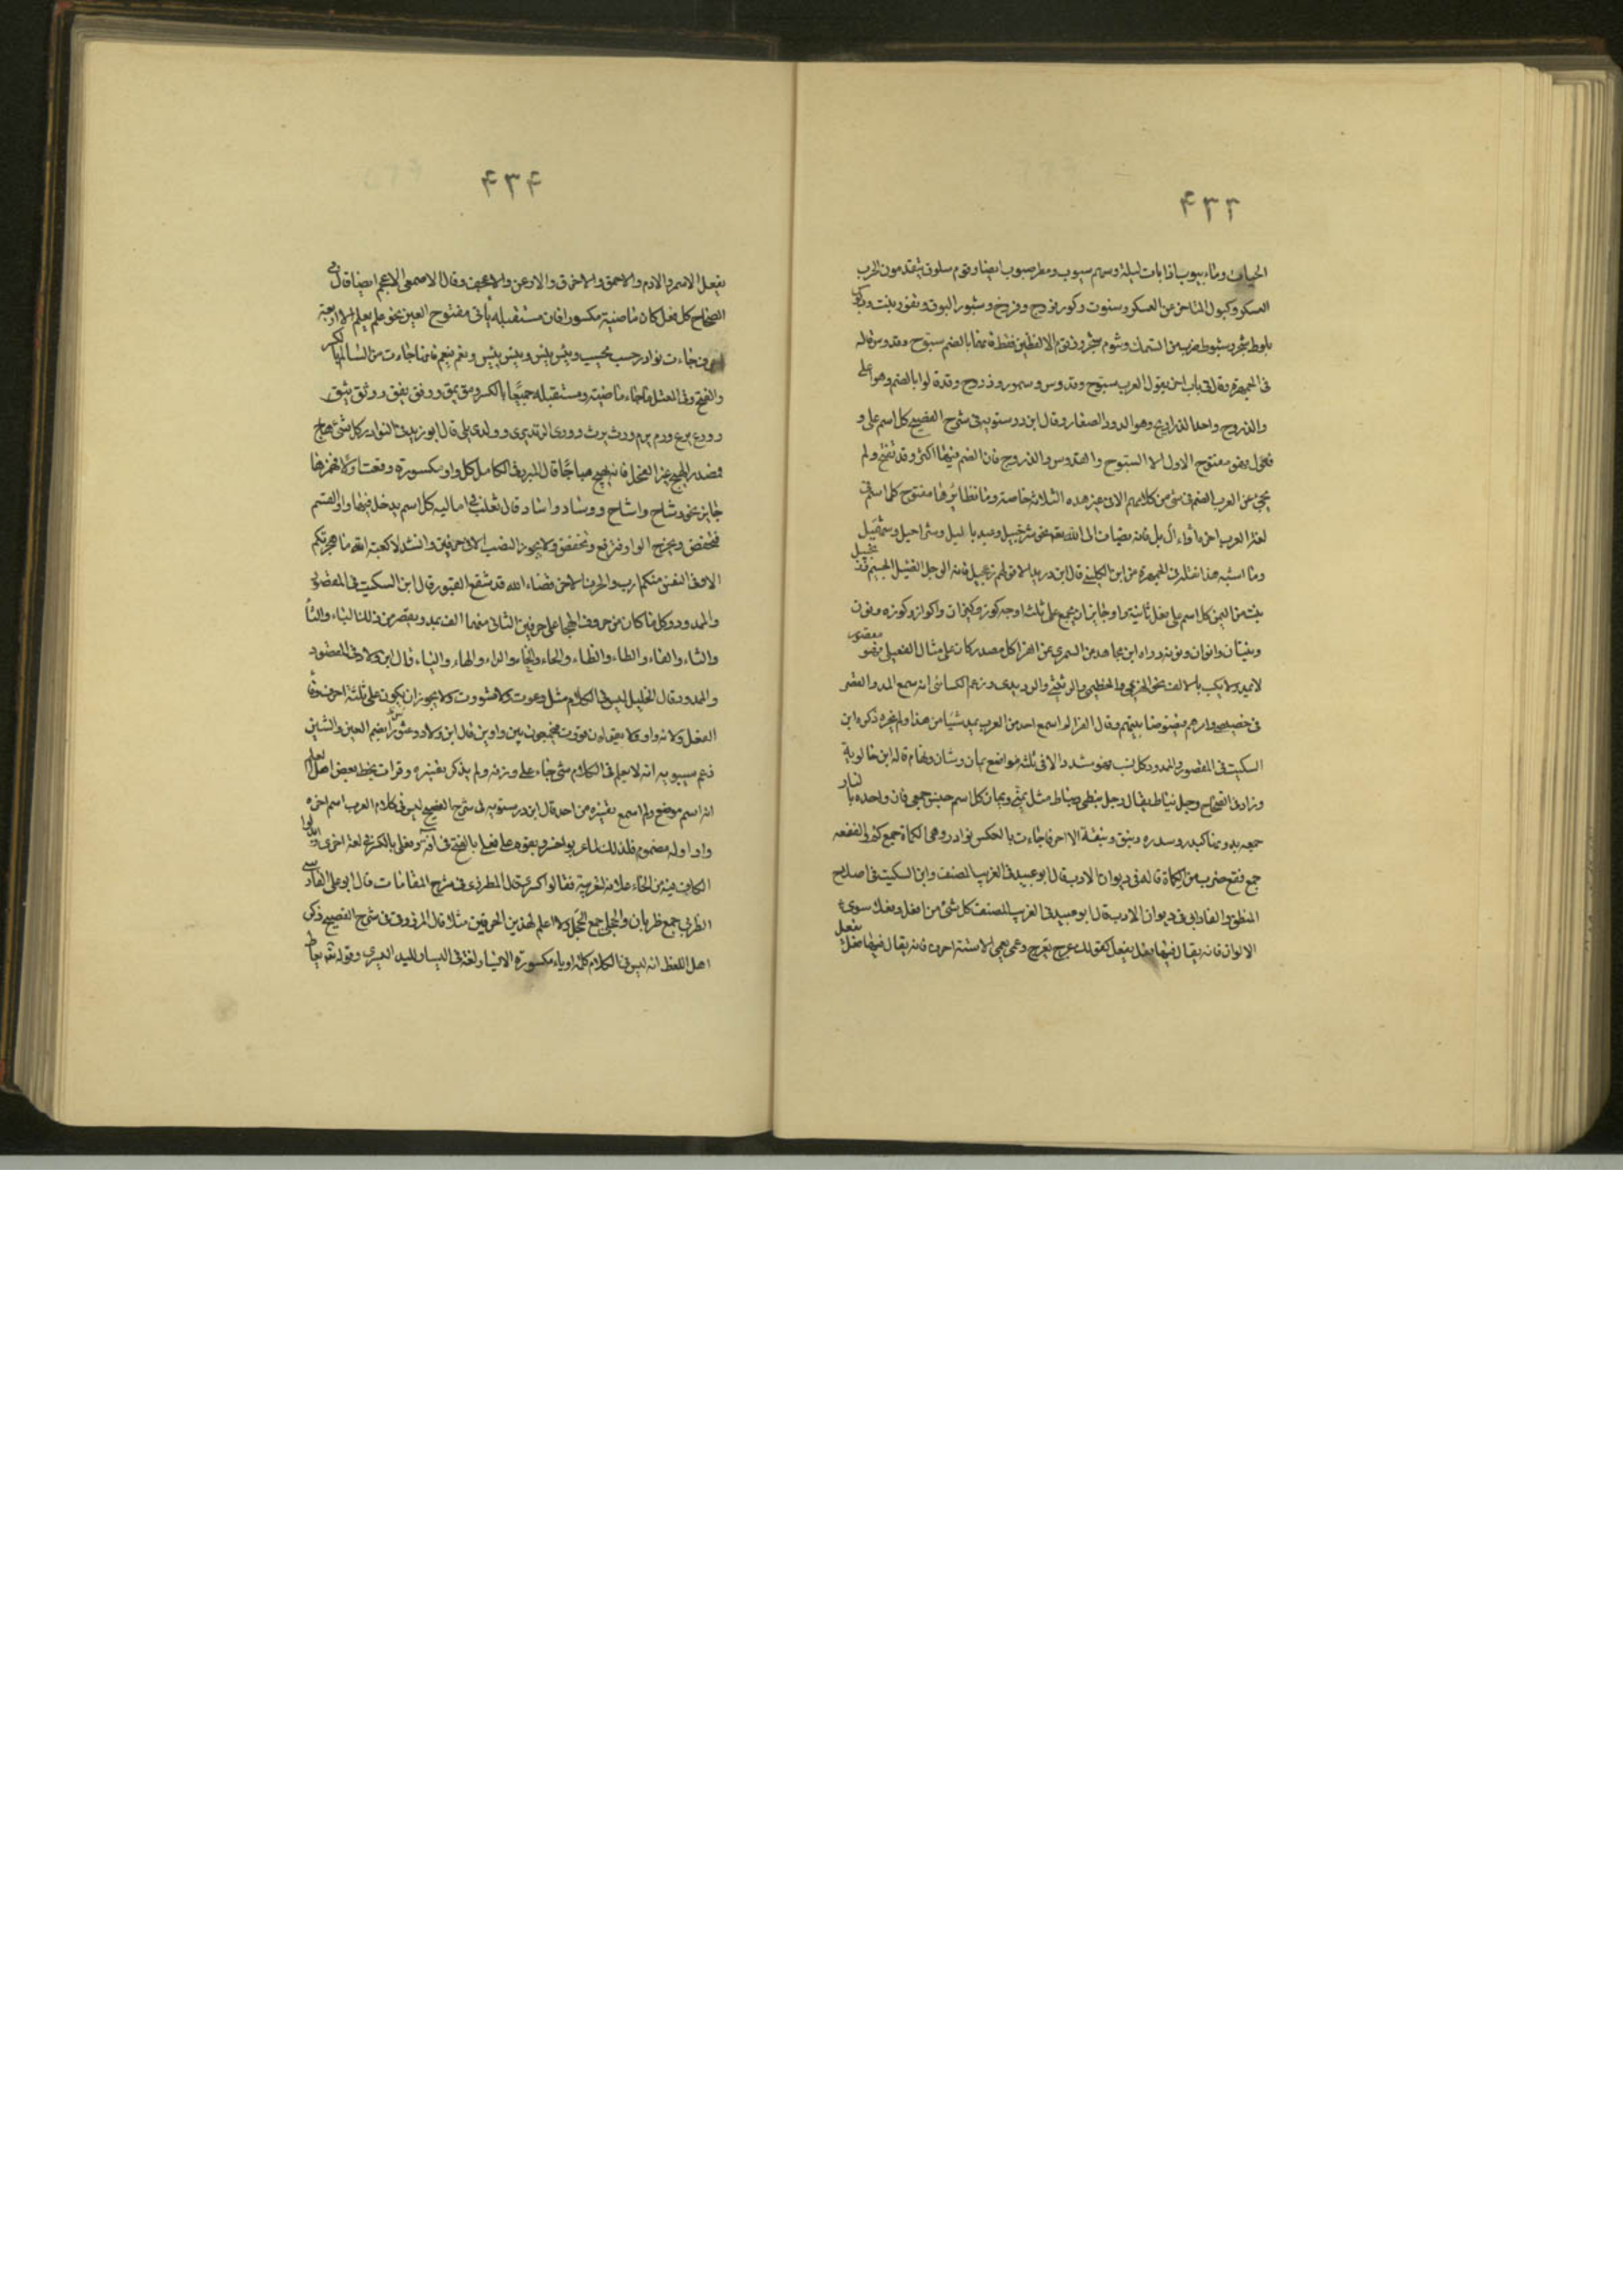 ٤٣٣
الحياض وماء بيوت اذا بات ليلة وسهم صيوب ومطر صيوب ايضا وقوم سلوف يتقدمون الحرب
العسكر وكيول المتاخر عن العسكر وسنوت وكور وفروج وفروخ وشبور البوق ونفور بنت ودبوس
بلوط شجر وشبوط ضرب من السمك وشوم شجر وتنوم الا لفظين فقط فانهما بالضم سبوح وقدوس قاله
فى الجمهرة وقال فى باب اخر يقول العرب سبوح وقدوس وسمور وذروح وقد قالوا بالضم وهو اعلى
والذروح واحد الذراريح وهو الدود الصغار وقال ابن درستويه فى شرح الفصيح كل اسم على و
فعول فهو مفتوح الاول الا السبوح والقدوس والذروح فان الضم فيها اكثر وقد تفتح ولم
يجئ عن العرب الضم فى شئ من كلامهم الا فى هذه الثلاثة خاصة وسائر نظائرها مفتوح كل اسم فى
لغة العرب اخره ال او ايل فانه يضاف الى الله تعالى نحو شرحبيل وعبد ياليل وشراحيل وشهميل
وما اشبه هذا نقله فى الجمهرة عن ابن الكلبى قال ابن دريد الا قولهم زنجيل فانه الرجل الضئيل الجسم قد
بنت من اليمن كل اسم على فعل ثانيه واو جايز ان يجمع على ثلثة اوجه كوز وكيزان واكواز وكوزه ونون
ونينان وانوان ونونة رواه ابن مجاهد عن السمرى عن الفرا كل مصدر كان على مثال الفعيلى فهو مقصور
لا يمد ولا يكتب بالالف نحو الهزيمى والخطيبى والرثيثى والرديدى وزعم الكسائى انه سمع المد والقصر
فى خصيصى وامرهم فيضوضا بينهم وقال الفرا لم اسمع احد من العرب يمد شيئا من هذا ولم يجزه ذكره ابن
السكيت فى المقصور والممدود كل نسب فهو مشدد الا فى ثلثة مواضع يمان وشان وتهام قاله ابن خالويه
وزاد فى الصحاح رجل نباط يقال رجل نبطى ونباط مثل يمنى ويمان كل اسم جنس جمعى فان واحده بالتا
جمعه بدونها كسدر وسدره ونبق ونبقة الا احرفا جاءت بالعكس نوادر وهى الكماة جمع كمؤ والفقعه
جمع فقع ضرب من الكماة قاله فى ديوان الادب قال ابو عبيد فى الغريب المصنف وابن السكيت فى اصلاح
المنطق والفارابى فى ديوان الادب قال ابو عبيد فى الغريب المصنف كل شئ من افعل وفعلاء سوى
الالوان فانه يقال فيها فعل يفعل كقولك عرج يعرج وعمى يعمى الا ستة احرف فانه يقال فيها فعل يفعل
٤٣٤
يفعل الاسمر والادم والاحمق والاخرق والارعن والاعجف وقال الاصمعى الاعجم ايضا قال فى
الصحاح كل فعل كان ماضيه مكسورا فان مستقبله يأتى مفتوح العين نحو علم يعلم الا اربعة
احرف جاءت نوادر حسب يحسب ويئس ييئس ويبس ييبس ونعم ينعم فانها جاءت من السالم بالكسر
والفتح وفى المعتل ما جاء ماضيه ومستقبله جميعا بالكسر ومق يمق ووفق يفق ووثق يثق
وورع يرع وورم يرم وورث يرث وورى الزند يرى وولى يلى قال ابو زيد فى النوادر كل شئ هاج
فمصدره الهيج غير الفحل فانه يهيج هياجا قال المبرد فى الكامل كل واو مكسورة وقعت اولا فهمزها
جايز نحو وشاح واشاح ووساد واساد قال ثعلب فى اماليه كل اسم يدخل فيها واو القسم
فتخفض وتخرج الواو فترفع وتخفض ولا يجوز النصب الا فى حرفين وانشد لا كعبة الله ما هجرتكم
الا وفى النفس منكم ارب والحرف الاخر قضاء الله قد شفع القبور قال ابن السكيت فى المقصور
والممدود وكل ما كان من حروف الهجا على حرفين الثانى منهما الف يمد ويقصر من ذلك الباء والتا
والثاء والفاء والطاء والظاء والحاء والخاء والراء والهاء والياء قال ابن ولاد فى المقصور
والممدود قال الخليل ليس فى الكلام مثل وعوت ولا شووت ولا يجوز ان يكون على ثلثة احرف وفا
الفعل ولامه واو ولا يقولون قووت فيجمعون بين واوين قال ابن ولاد وعشورا بضم العين والشين
زعم سيبويه انه لا يعلم فى الكلام شئ جاء على وزنه ولم يذكر تفسيره وقرات بخط بعض اهل العلم
انه اسم موضع ولم اسمع تفسيره من احد قال ابن درستويه فى شرح الفصيح ليس فى كلام العرب اسم اخره
واو اوله مضموم فلذلك لما عربوا خسرو بنوه على فعلى بالفتح فى لغة وفعلى بالكسر فى لغة اخرى وابدلوا
الكاف فيه من الخاء علامة لتعريبه فقالوا كسرى قال المطرزى فى شرح المقامات قال ابو على الفارسى
الظربى جمع ظربان والحجلى جمع الحجل ولا اعلم لهذين الحرفين مثلا قال المرزوقى فى شرح الفصيح ذكر
اهل اللغه انه ليس فى الكلام كلمة اولها ياء مكسورة الا يسار لغة فى اليسار لليد اليسرى وقولهم يعاط